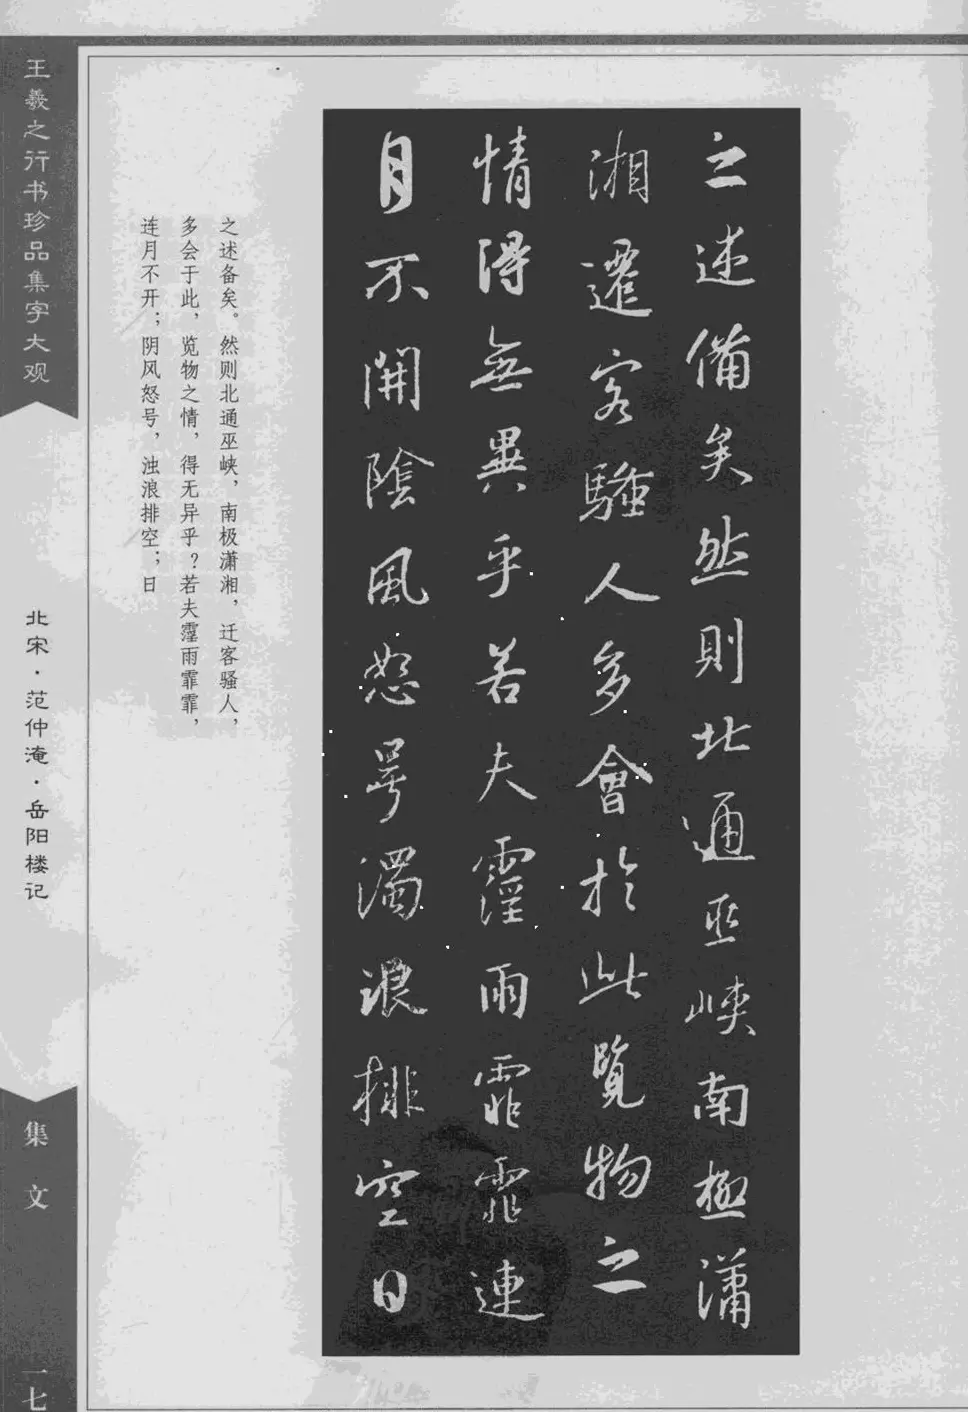 之述備矣然則北通巫峽南極瀟
湘遷客騷人多會於此覽物之
情得無異乎若夫霪雨霏霏連
月不開陰風怒号濁浪排空日
之述备矣。然则北通巫峡，南极潇湘，迁客骚人，
多会于此，览物之情，得无异乎？若夫霪雨霏霏，
连月不开；阴风怒号，浊浪排空；日
王羲之行书珍品集字大观
北宋·范仲淹·岳阳楼记
集文
一七